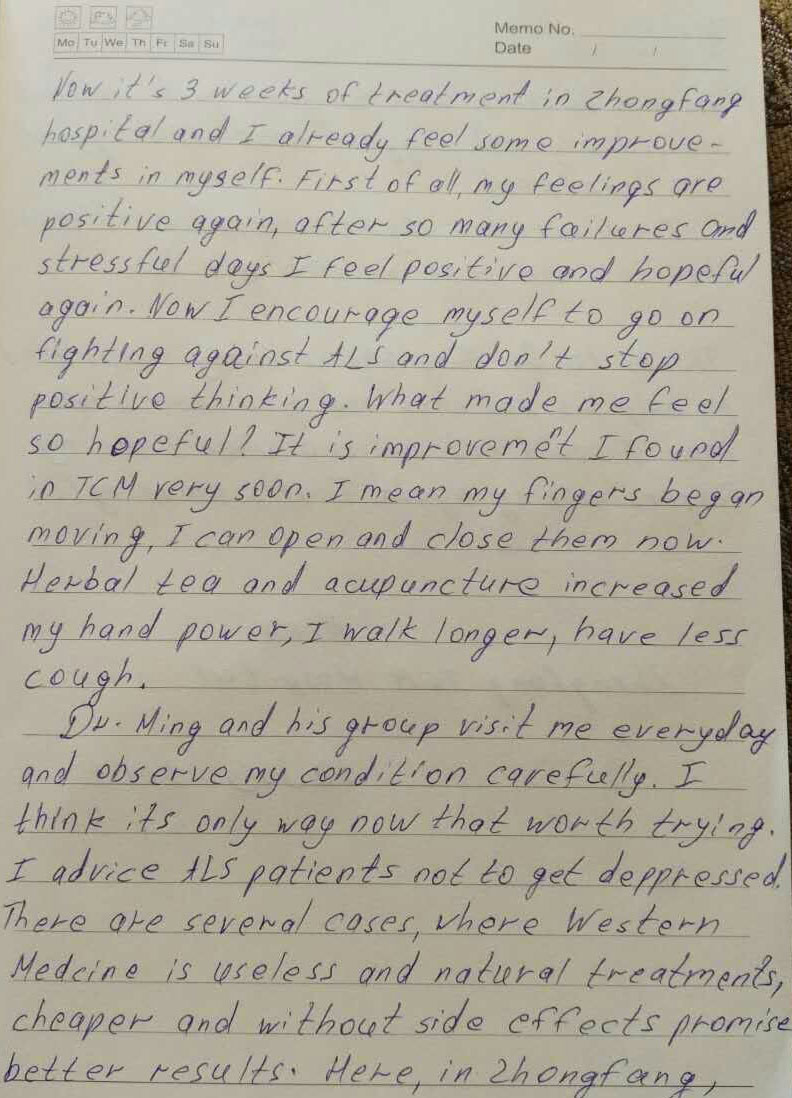 Memo No.
Mo Tu We Th Fr Sa Su
Date / /
Now it's 3 weeks of treatment in Zhongfang
hospital and I already feel some improve-
ments in myself. First of all, my feelings are
positive again, after so many failures and
stressful days I feel positive and hopeful
again. Now I encourage myself to go on
fighting against ALS and don't stop
positive thinking. What made me feel
so hopeful? It is improvement I found
in TCM very soon. I mean my fingers began
moving, I can open and close them now.
Herbal tea and acupuncture increased
my hand power, I walk longer, have less
cough.
Dr. Ming and his group visit me everyday
and observe my condition carefully. I
think its only way now that worth trying.
I advice ALS patients not to get deppressed.
There are several cases, where Western
Medcine is useless and natural treatments,
cheaper and without side effects promise
better results. Here, in Zhongfang,